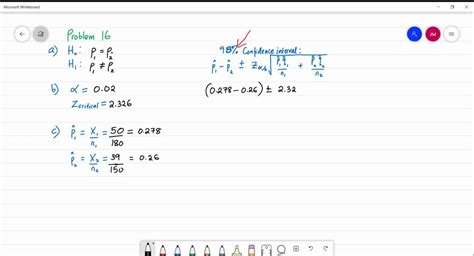 Microsoft Whiteboard
Problem 16
a) H₀: p₁ = p₂
H₁: p₁ ≠ p₂
b) α = 0.02
Zcritical = 2.326
c) p̂₁ = X₁/n₁ = 50/180 = 0.278
p̂₂ = X₂/n₂ = 39/150 = 0.26
98% Confidence interval:
p̂₁ - p̂₂ ± Zα/2 √(p̂₁q̂₁/n₁ + p̂₂q̂₂/n₂)
(0.278 - 0.26) ± 2.32